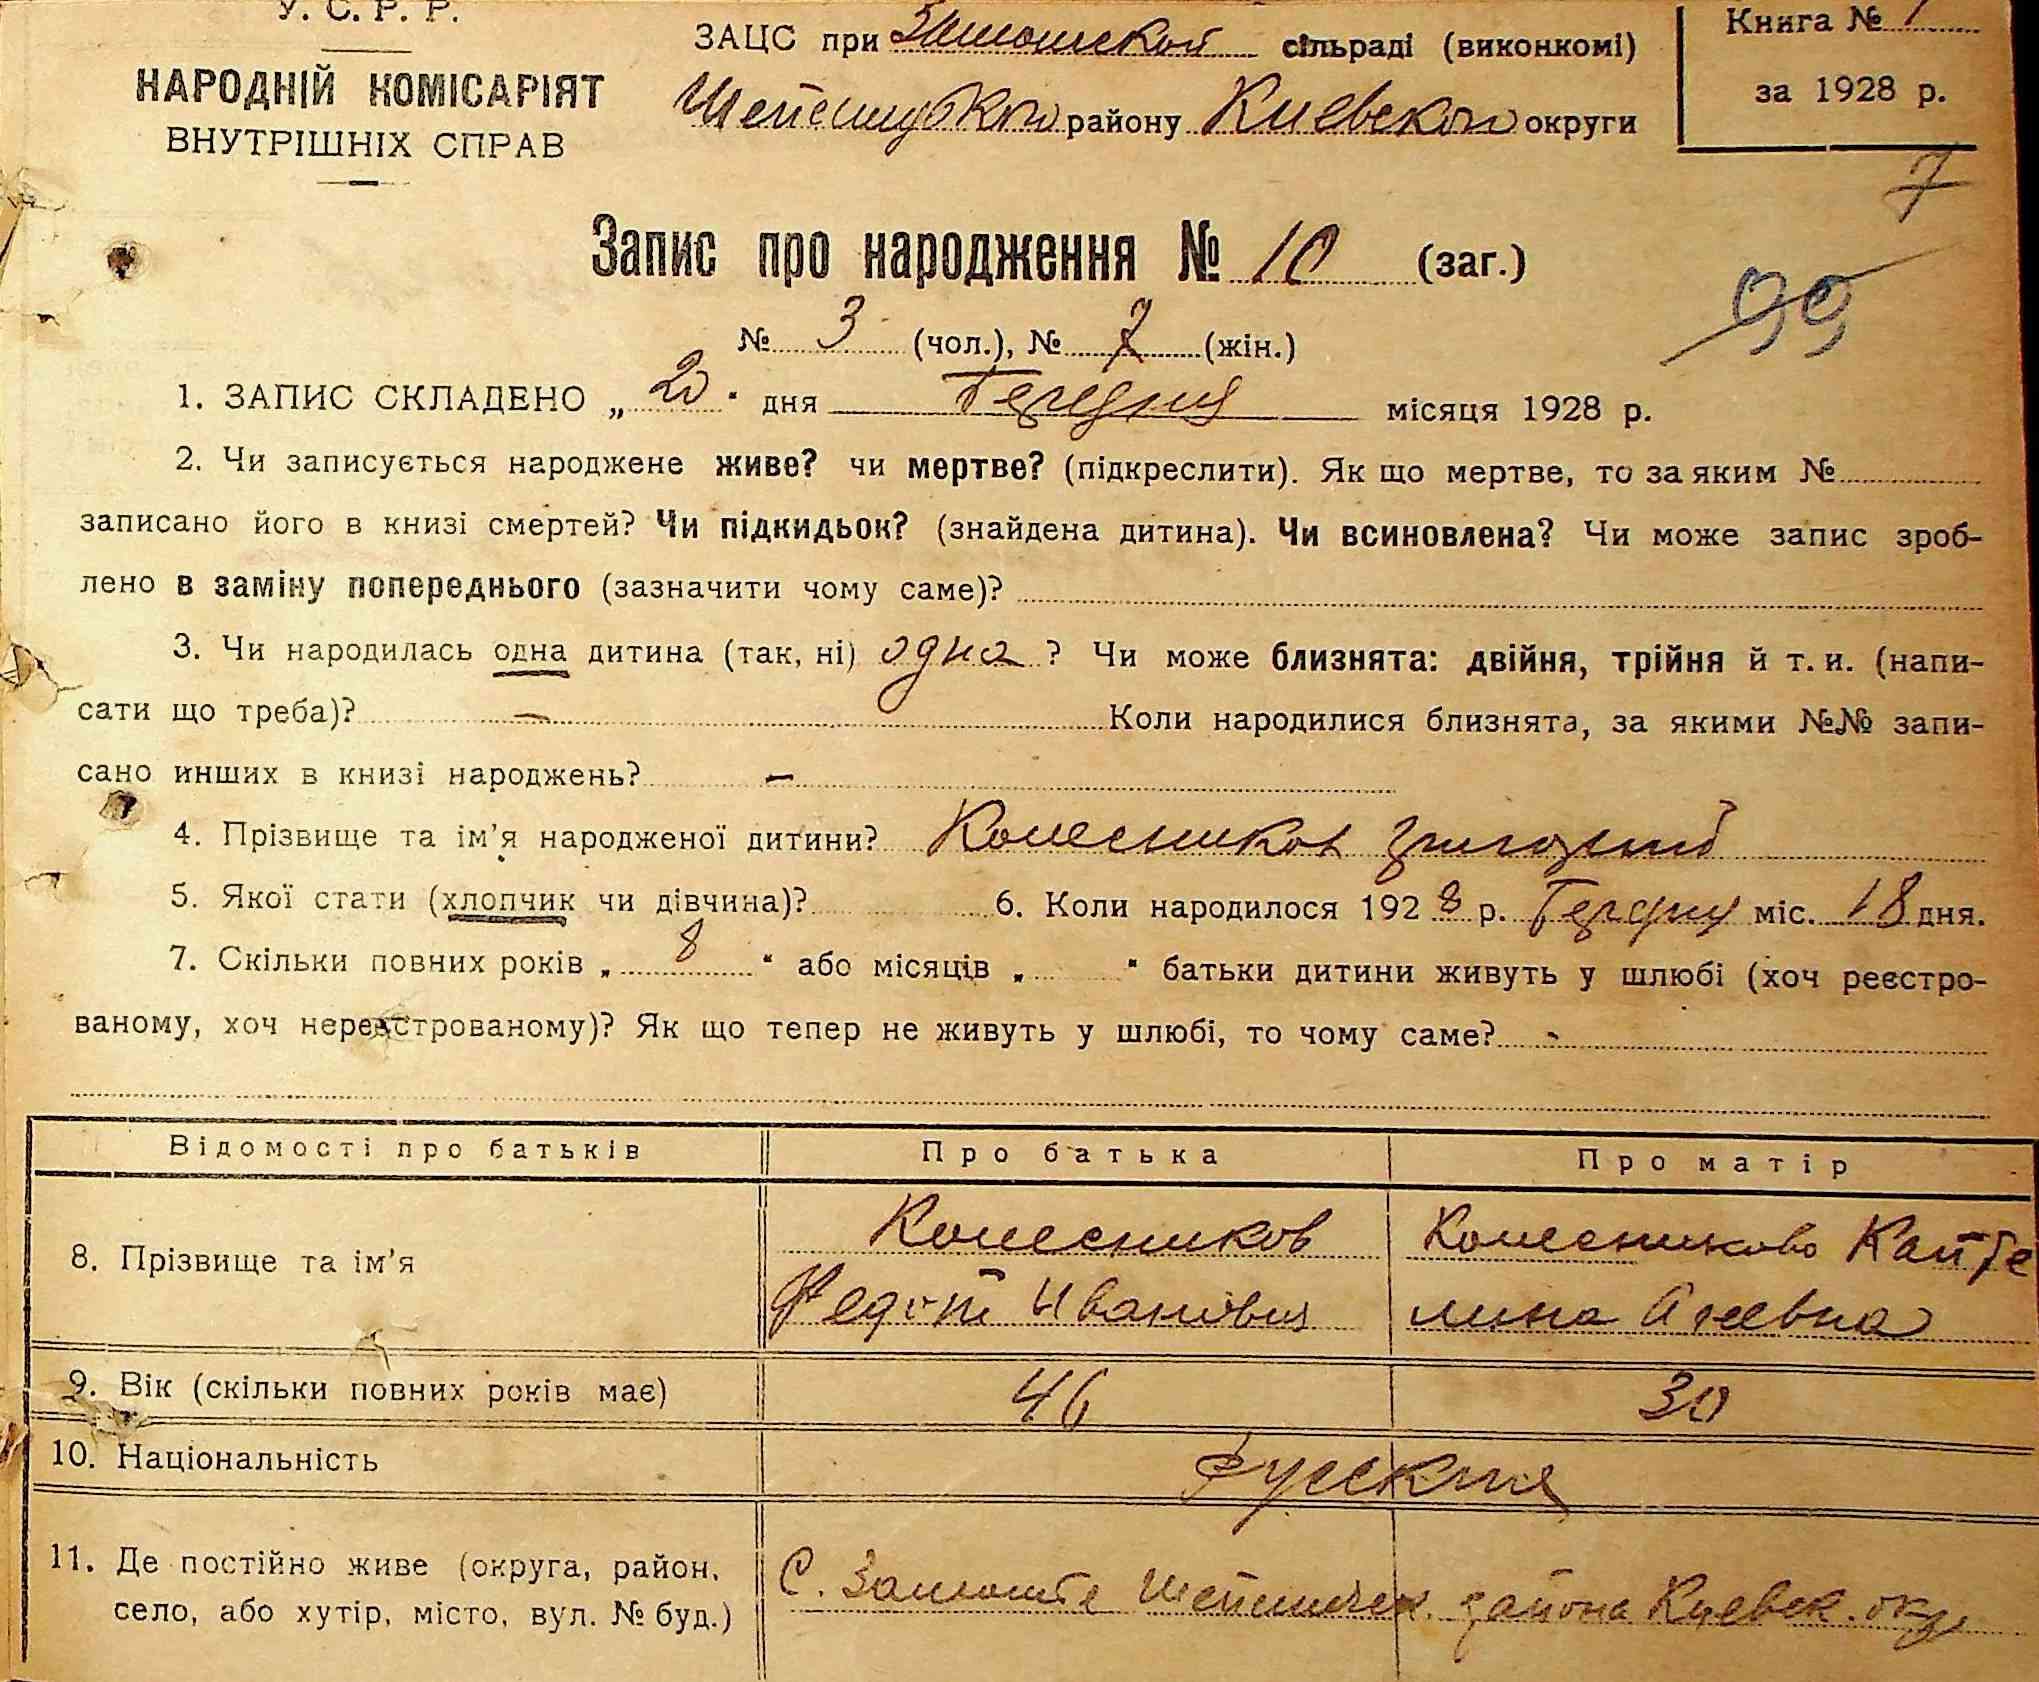 У. С. Р. Р.
НАРОДНІЙ КОМІСАРІЯТ
ВНУТРІШНІХ СПРАВ
ЗАЦС при сільраді (виконкомі)
району Киевской округи
Книга № 1
за 1928 р.
7
99
Запис про народження № 10 (заг.)
№ 3 (чол.), № 7 (жін.)
1. ЗАПИС СКЛАДЕНО „ 20 " дня місяця 1928 р.
2. Чи записується народжене живе? чи мертве? (підкреслити). Як що мертве, то за яким №
записано його в книзі смертей? Чи підкидьок? (знайдена дитина). Чи всиновлена? Чи може запис зроб-
лено в заміну попереднього (зазначити чому саме)?
3. Чи народилась одна дитина (так, ні) одна ? Чи може близнята: двійня, трійня й т. и. (напи-
сати що треба)? — Коли народилися близнята, за якими №№ запи-
сано инших в книзі народжень? —
4. Прізвище та ім'я народженої дитини? Колесников Григорий
5. Якої стати (хлопчик чи дівчина)? 6. Коли народилося 1928 р. міс. 18 дня.
7. Скільки повних років „ 8 " або місяців „ " батьки дитини живуть у шлюбі (хоч реєстро-
ваному, хоч нереєстрованому)? Як що тепер не живуть у шлюбі, то чому саме? -
Відомості про батьків Про батька Про матір
8. Прізвище та ім'я Колесников Федот Иванович Колесникова
9. Вік (скільки повних років має) 46 30
10. Національність Русския
11. Де постійно живе (округа, район,
село, або хутір, місто, вул. № буд.) С. района Киевск. окр